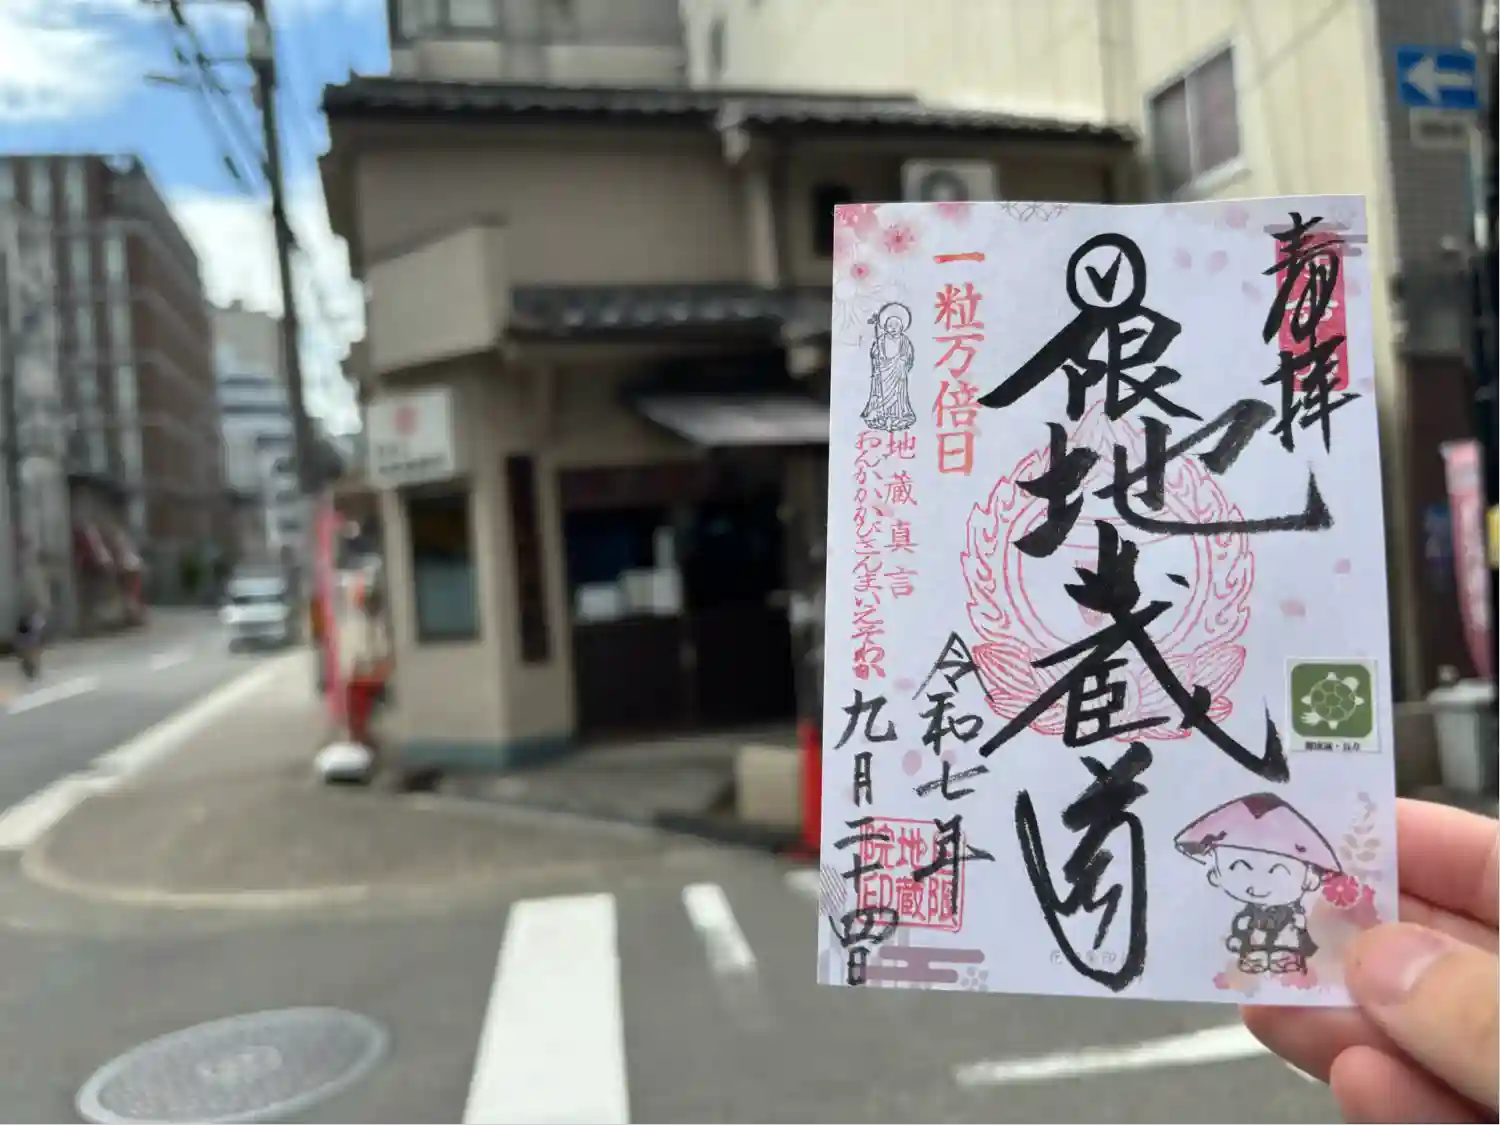 奉拝
日限地蔵尊
一粒万倍日
地蔵真言
おんかかかびさんまいえそわか
令和七年
九月二十四日
日限
地蔵
院印